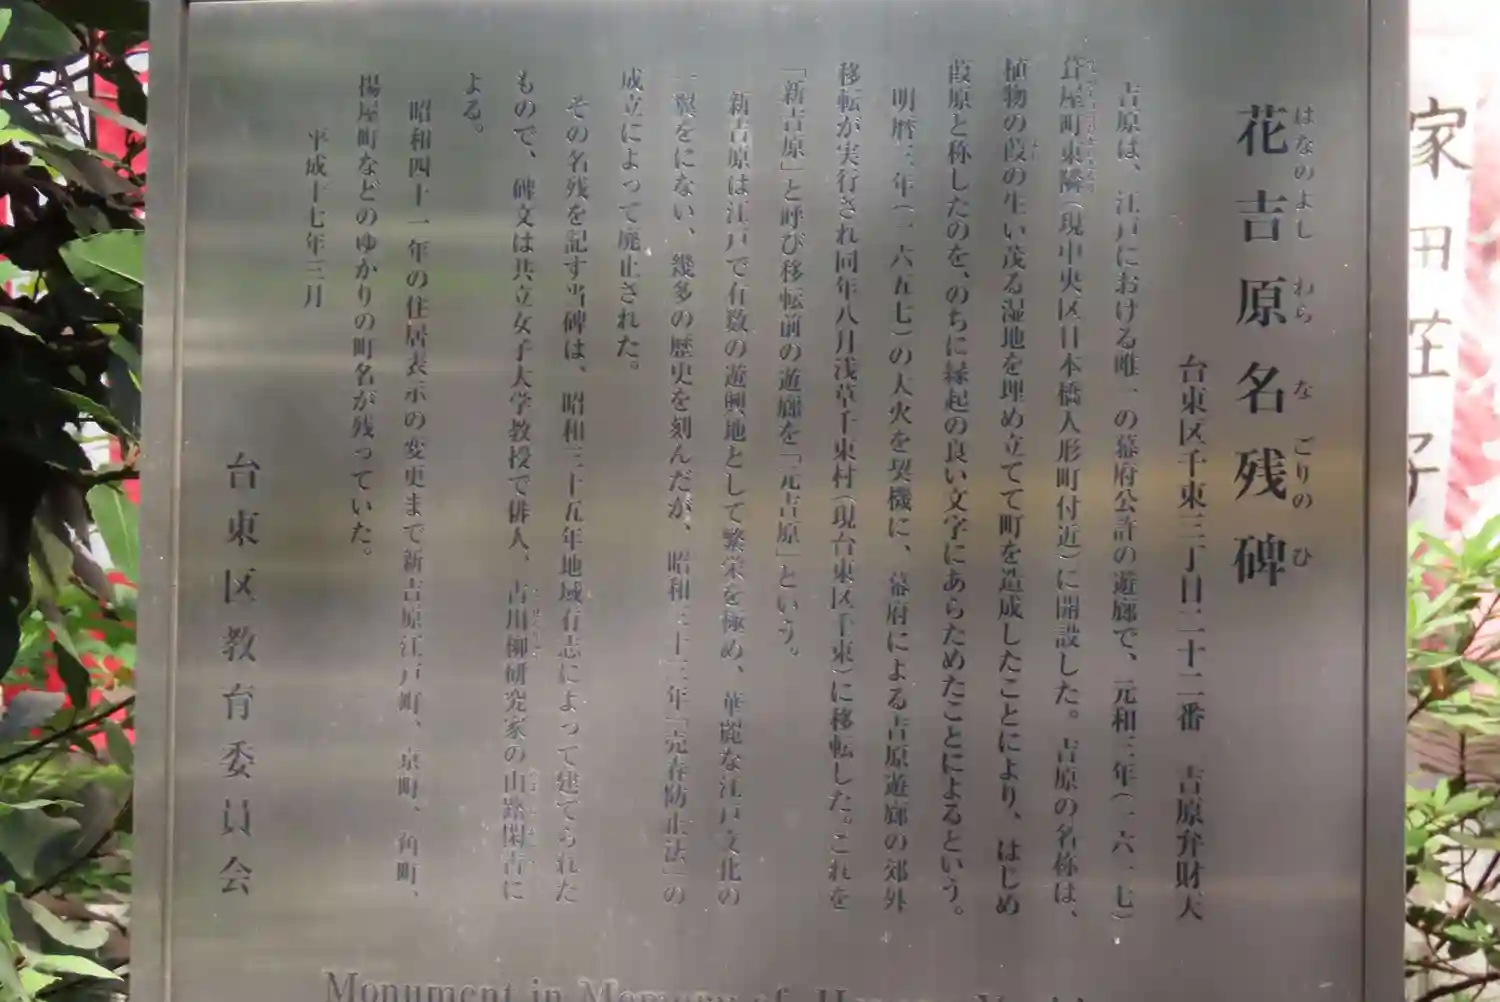 花吉原名残碑
はなのよし わら なごりの ひ
台東区千束三丁目二十二番 吉原弁財天
吉原は、江戸における唯一の幕府公許の遊廓で、元和三年(一六一七)
葺屋町東隣(現中央区日本橋人形町付近)に開設した。吉原の名称は、
植物の葭の生い茂る湿地を埋め立てて町を造成したことにより、はじめ
葭原と称したのを、のちに縁起の良い文字にあらためたことによるという。
明暦三年(一六五七)の大火を契機に、幕府による吉原遊廓の郊外
移転が実行され同年八月浅草千束村(現台東区千束)に移転した。これを
「新吉原」と呼び移転前の遊廓を「元吉原」という。
新吉原は江戸で有数の遊興地として繁栄を極め、華麗な江戸文化の
一翼をにない、幾多の歴史を刻んだが、昭和三十三年「売春防止法」の
成立によって廃止された。
その名残を記す当碑は、昭和三十五年地域有志によって建てられた
もので、碑文は共立女子大学教授で俳人、古川柳研究家の山路閑古に
よる。
昭和四十一年の住居表示の変更まで新吉原江戸町、京町、角町、
揚屋町などのゆかりの町名が残っていた。
平成十七年三月
台東区教育委員会
Monument in Memory of
家田荘子